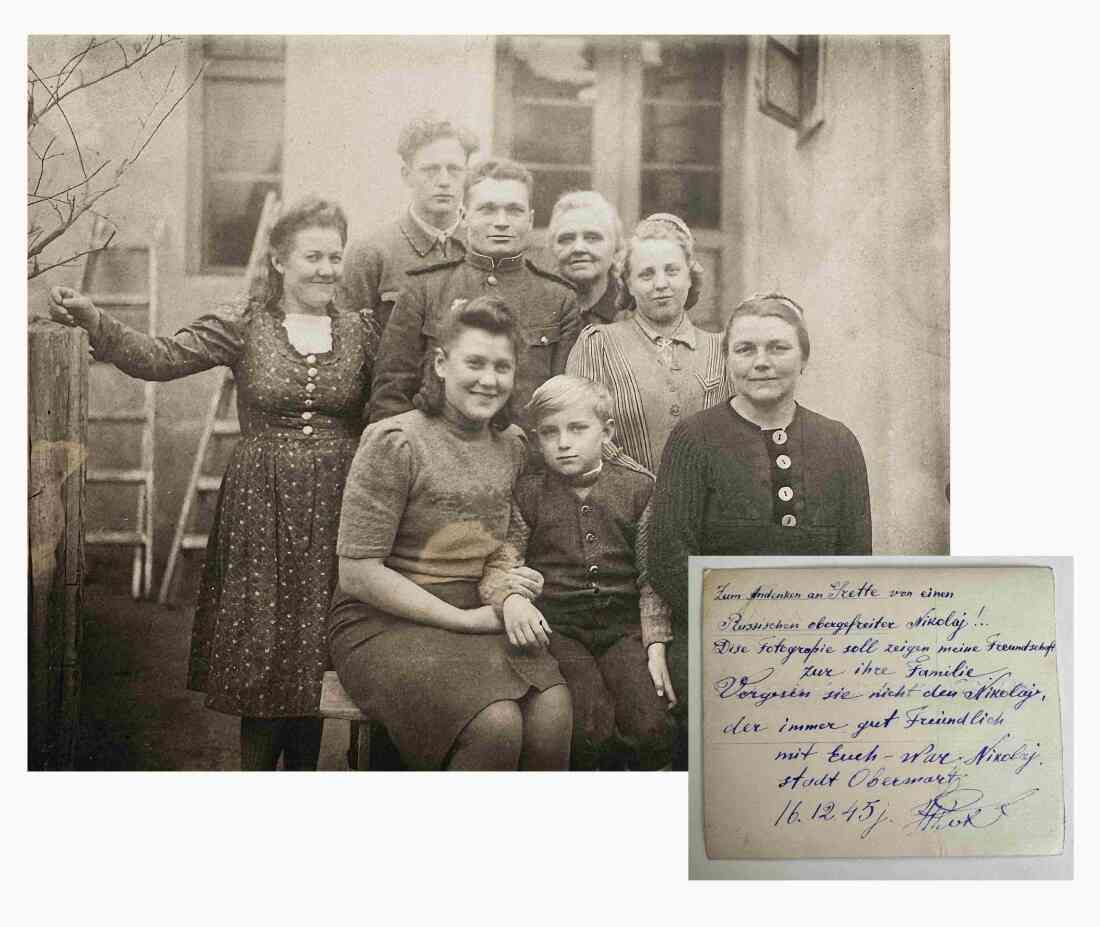 Zum Andenken an Grette von einen
Russischen obergefreiter Nikolaj!..
Dise Fotegrapie soll zeigen meine Freundschoft
zur ihre Familie.
Vergesen sie nicht den Nikolaj,
der immer gut Freundlich
mit Euch-war Nikolaj.
stadt Obermarz
16.12.45j.